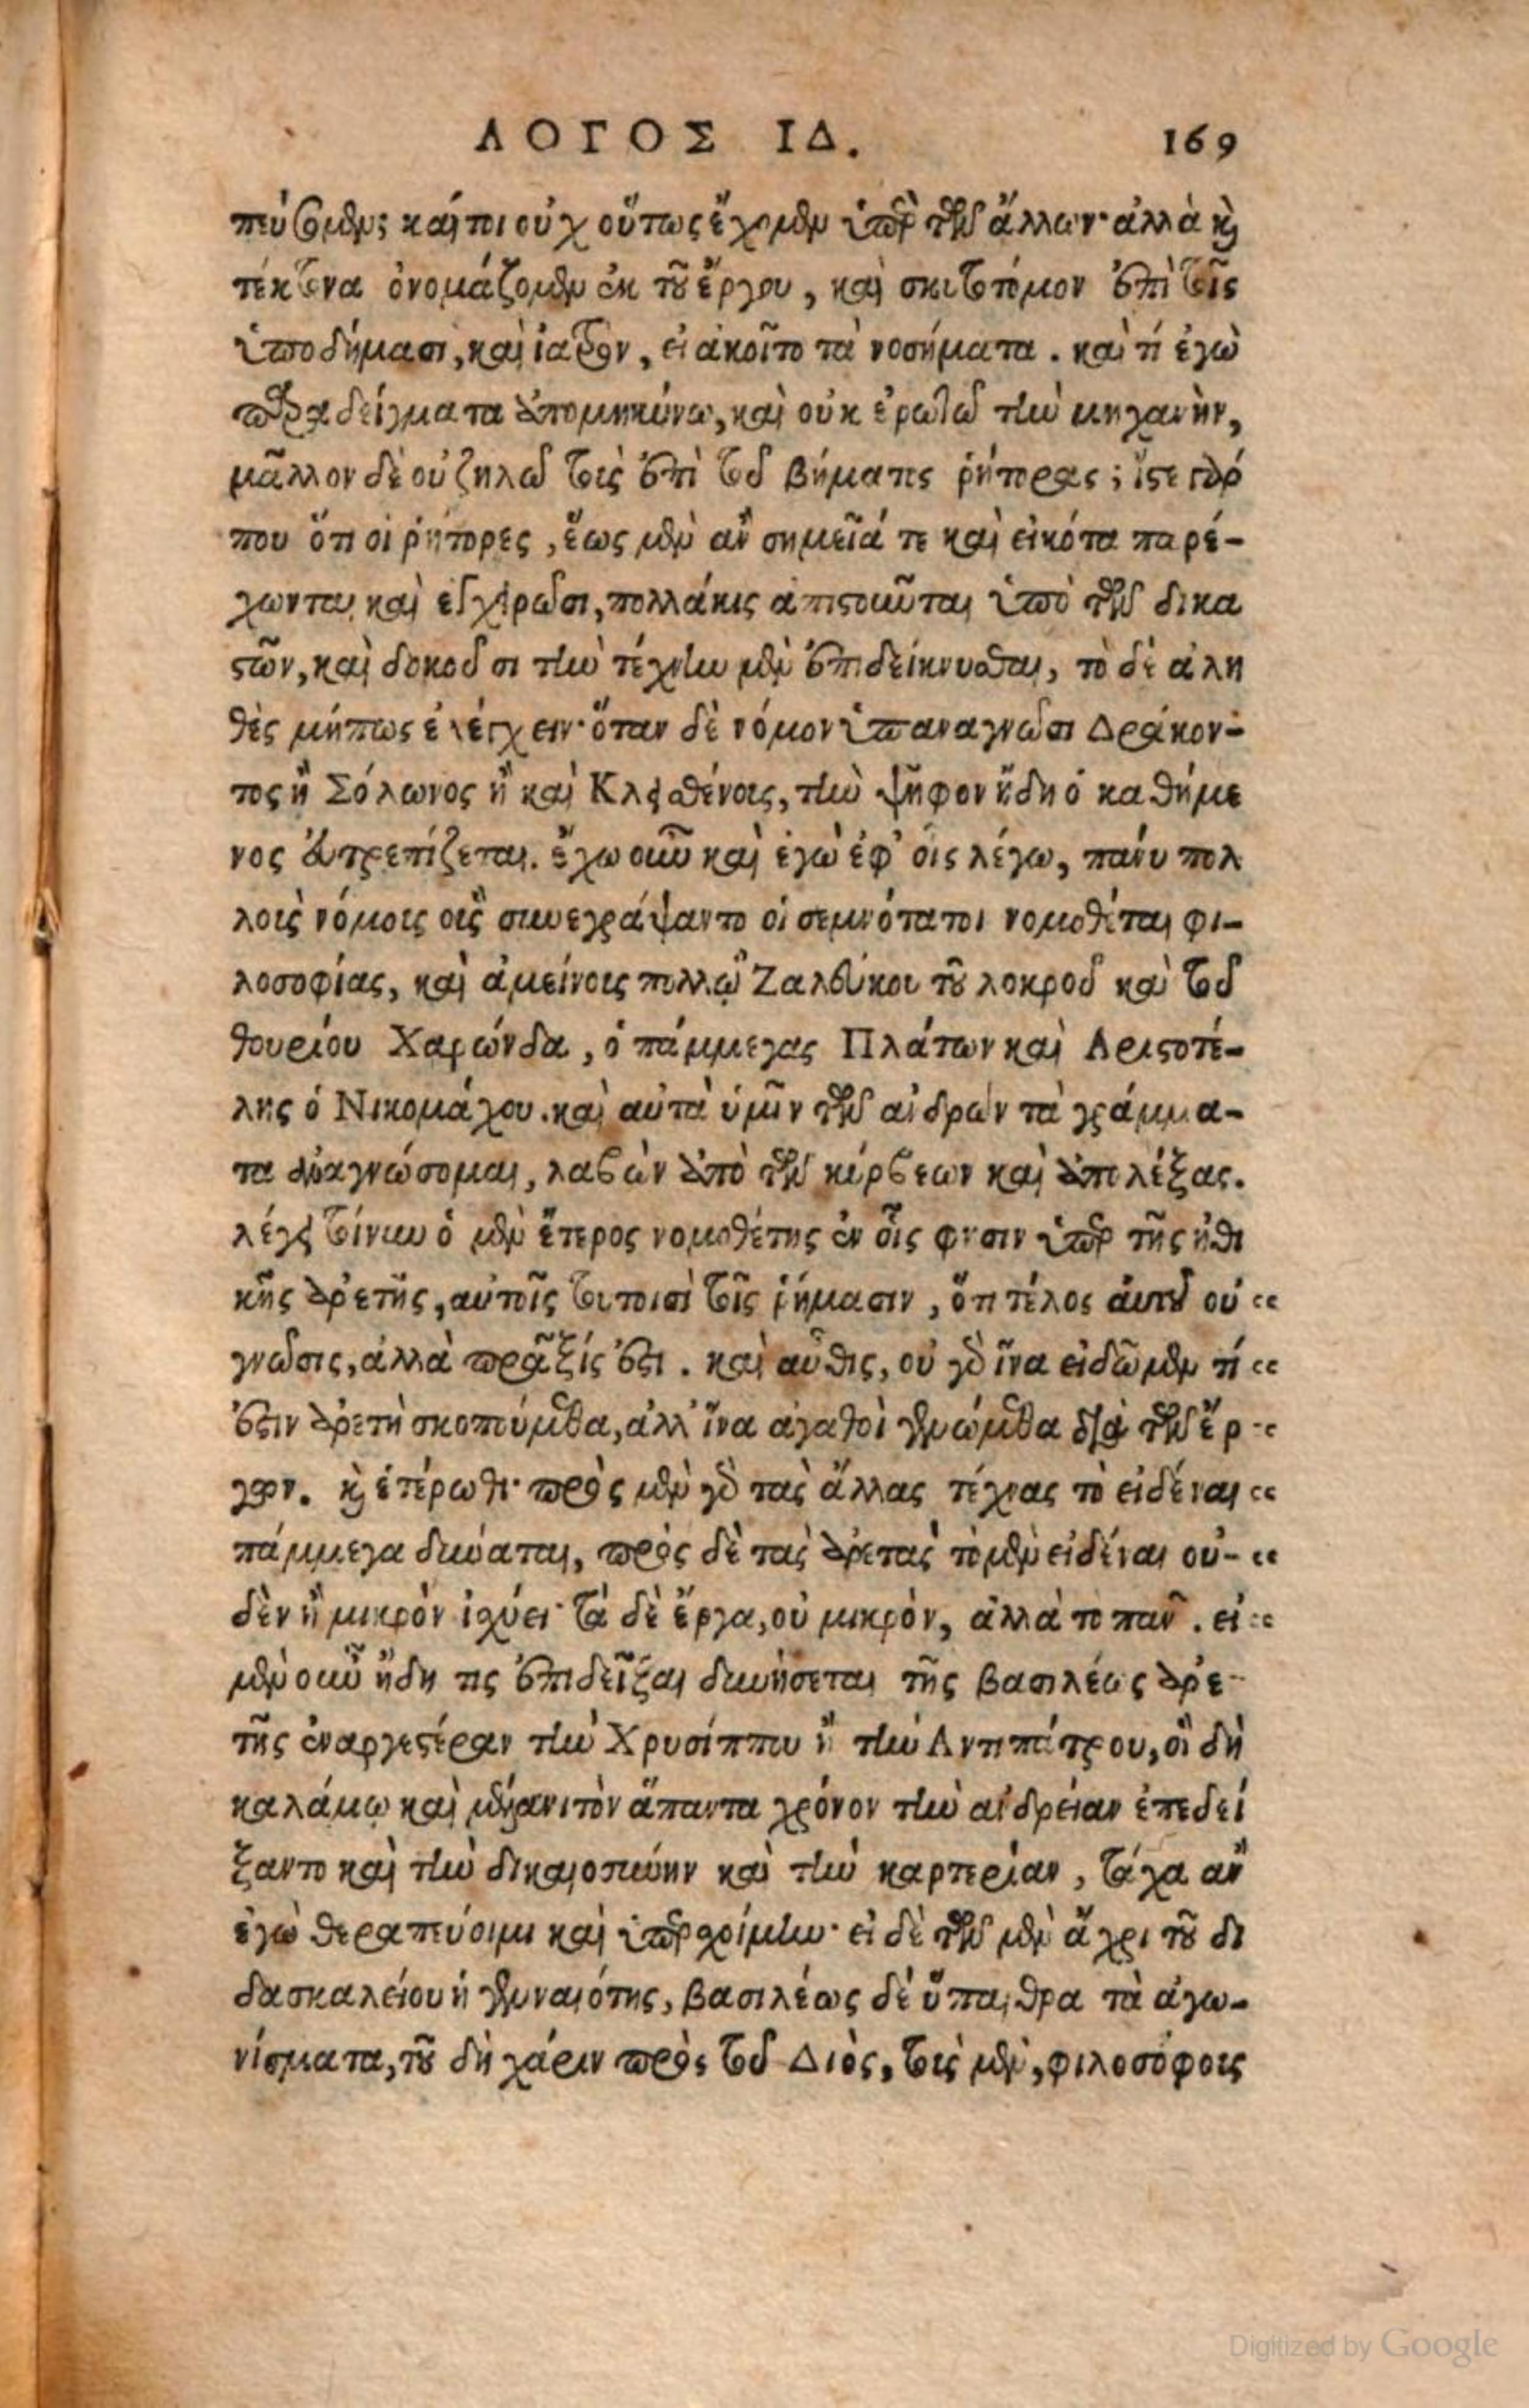 ΛΟΓΟΣ ΙΔ. 169
πεύσομεν; καίτοι οὐχ οὕτως ἔχομεν ὑπὲρ τῶν ἄλλων· ἀλλὰ καὶ
τέκτονα ὀνομάζομεν ἐκ τοῦ ἔργου, καὶ σκυτοτόμον ἐπὶ τοῖς
ὑποδήμασι, καὶ ἰατρὸν, εἰ ἀκοῖτο τὰ νοσήματα. καὶ τί ἐγὼ
παραδείγματα ἀπομηκύνω, καὶ οὐκ ἐρωτῶ τὴν μηχανὴν,
μᾶλλον δὲ οὐ ζηλῶ τοὺς ἐπὶ τοῦ βήματος ῥήτορας; ἴστε γάρ
που ὅτι οἱ ῥήτορες, ἕως μὲν ἂν σημεῖά τε καὶ εἰκότα παρέ-
χωνται καὶ , πολλάκις ἀπιστοῦνται ὑπὸ τῶν δικα
στῶν, καὶ δοκοῦσι τὴν τέχνην μὲν ἐπιδείκνυσθαι, τὸ δὲ ἀλη
θὲς μήπως ἐλέγχειν· ὅταν δὲ νόμον ὑπαναγνῶσι Δράκον-
τος ἢ Σόλωνος ἢ καὶ Κλεισθένους, τὴν ψῆφον ἤδη ὁ καθήμε
νος εὐτρεπίζεται. ἔχω οὖν καὶ ἐγὼ ἐφ' οἷς λέγω, πάνυ πολ
λοὺς νόμους οὓς συνεγράψαντο οἱ σεμνότατοι νομοθέται φι-
λοσοφίας, καὶ ἀμείνους πολλῷ Ζαλεύκου τοῦ λοκροῦ καὶ τοῦ
θουρίου Χαρώνδα, ὁ πάμμεγας Πλάτων καὶ Αριστοτέ-
λης ὁ Νικομάχου. καὶ αὐτὰ ὑμῖν τῶν ἀνδρῶν τὰ γράμμα-
τα ἀναγνώσομαι, λαβὼν ἀπὸ τῶν κύρβεων καὶ ἀπολέξας.
λέγει τοίνυν ὁ μὲν ἕτερος νομοθέτης ἐν οἷς φησιν ὑπὲρ τῆς ἠθι
κῆς ἀρετῆς, αὐτοῖς τουτοισὶ τοῖς ῥήμασιν, ὅτι τέλος αὐτῆς οὐ “
γνῶσις, ἀλλὰ πρᾶξίς ἐστι. καὶ αὖθις, οὐ γὰρ ἵνα εἰδῶμεν τί “
ἐστιν ἀρετὴ σκοπούμεθα, ἀλλ' ἵνα ἀγαθοὶ γενώμεθα διὰ τῶν ἔρ “
γων. καὶ ἑτέρωθι· πρὸς μὲν γὰρ τὰς ἄλλας τέχνας τὸ εἰδέναι “
πάμμεγα δύναται, πρὸς δὲ τὰς ἀρετὰς τὸ μὲν εἰδέναι οὐ- “
δὲν ἢ μικρὸν ἰσχύει· τὰ δὲ ἔργα, οὐ μικρὸν, ἀλλὰ τὸ πᾶν. εἰ “
μὲν οὖν ἤδη τις ἐπιδεῖξαι δυνήσεται τῆς βασιλέως ἀρε-
τῆς ἐναργεστέραν τὴν Χρυσίππου ἢ τὴν Αντιπάτρου, οἳ δὴ
καλάμῳ καὶ μέλανι τὸν ἅπαντα χρόνον τὴν ἀνδρείαν ἐπεδεί
ξαντο καὶ τὴν δικαιοσύνην καὶ τὴν καρτερίαν, τάχα ἂν
ἐγὼ θεραπεύοιμι καὶ ὑπεροροίμην· εἰ δὲ τῶν μὲν ἄχρι τοῦ δι
δασκαλείου ἡ γενναιότης, βασιλέως δὲ ὕπαιθρα τὰ ἀγω-
νίσματα, τοῦ δὴ χάριν πρὸς τοῦ Διὸς, τοὺς μὲν, φιλοσόφους
Digitized by Google